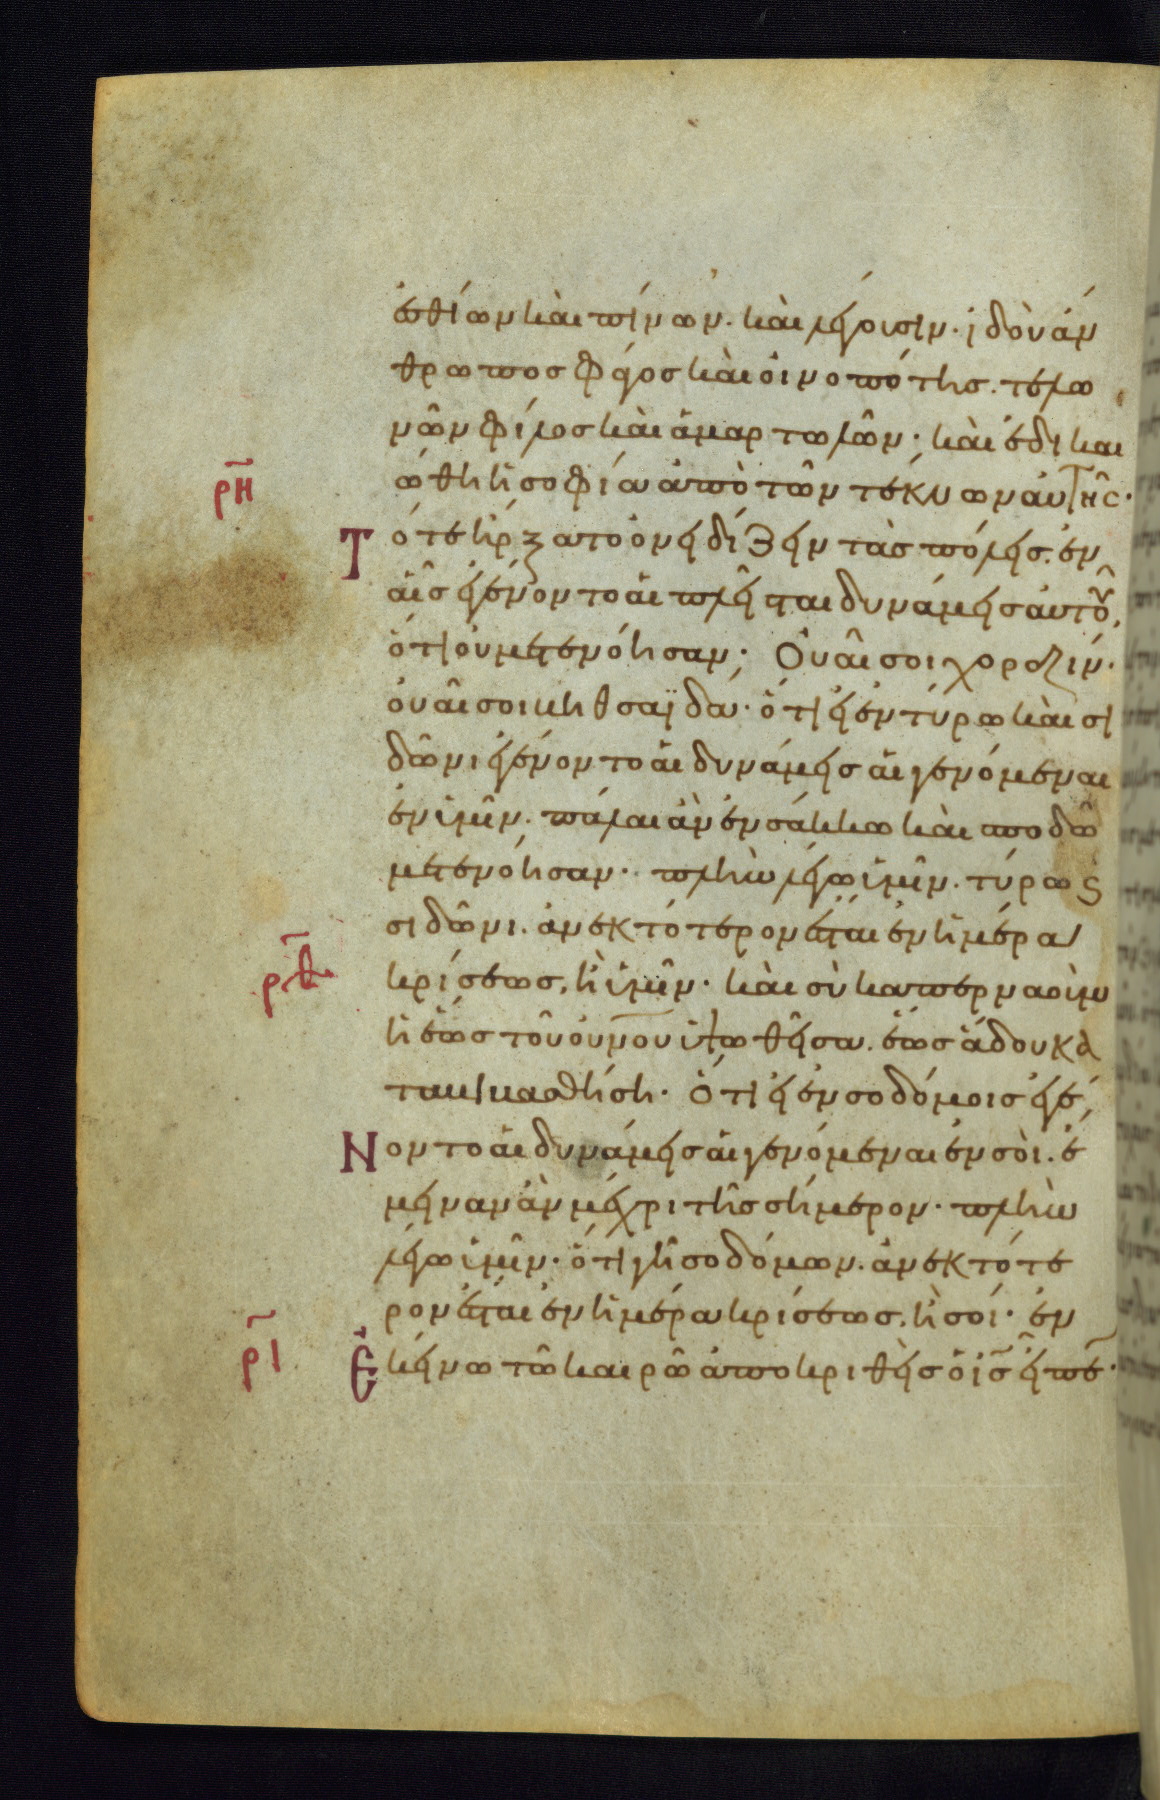 ἐσθίων καὶ πίνων· καὶ λέγουσιν· ἰδοὺ ἄν
θρωπος φάγος καὶ οἰνοπότης. τελω
νῶν φίλος καὶ ἁμαρτωλῶν· καὶ ἐδικαι
ρη ώθη ἡ σοφία ἀπὸ τῶν τέκνων αὐτῆς·
Τότε ἤρξατο ὀνειδίζειν τὰς πόλεις. ἐν
αἷς ἐγένοντο αἱ πλεῖσται δυνάμεις αὐτοῦ,
ὅτι οὐ μετενόησαν· Οὐαί σοι χοραζίν·
οὐαί σοι βηθσαϊδά· ὅτι εἰ ἐν τύρω καὶ σι
δῶνι ἐγένοντο αἱ δυνάμεις αἱ γενόμεναι
ἐν ὑμῖν. πάλαι ἂν ἐν σάκκω καὶ σποδῶ
μετενόησαν· πλὴν λέγω ὑμῖν. τύρω ϗ
σιδῶνι. ἀνεκτότερον ἔσται ἐν ἡμέρα
ρθ κρίσεως, ἢ ὑμῖν· καὶ σὺ καπερναοὺμ
ἡ ἕως τοῦ οὐνου ὑψωθεῖσα. ἕως ἅδου κα
ταβιβασθήση· Ὅτι εἰ ἐν σοδόμοις ἐγέ
Νοντο αἱ δυνάμεις αἱ γενόμεναι ἐν σοὶ. ἔ
μειναν ἂν μέχρι τῆς σήμερον· πλὴν
λέγω ὑμῖν· ὅτι γῆ σοδόμων. ἀνεκτότε
ρον ἔσται ἐν ἡμέρα κρίσεως, ἢ σοί· ἐν
ρι Ἐκείνω τῶ καιρῶ ἀποκριθεὶς ὁ ις εἶπε·